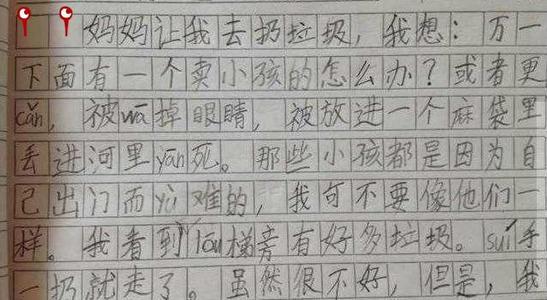 妈妈让我去扔垃圾，我想：万一
下面有一个卖小孩的怎么办？或者更
cǎn，被wā掉眼睛，被放进一个麻袋里
丢进河里yān死。那些小孩都是因为自
己出门而yù难的，我可不要像他们一
样。我看到lóu梯旁有好多垃圾。suí手
一扔就走了。虽然很不好，但是，我